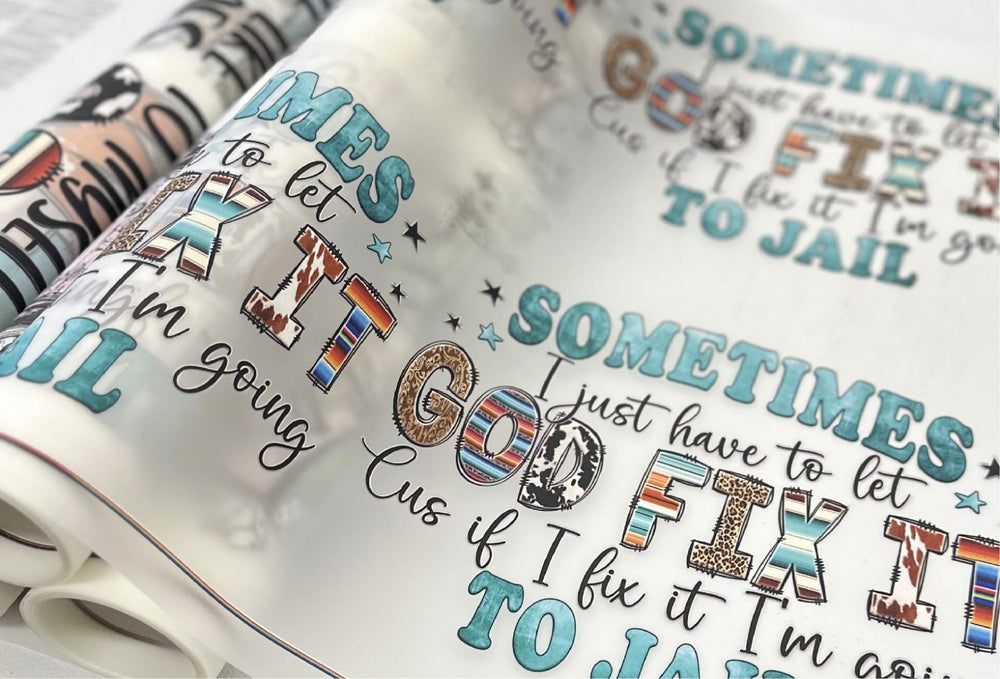 going
SOMETIMES
I just have to let
GOD FIX I
Cus if I fix it I'm go
TO JAIL
IMES
to let
IX IT
I'm going
AIL
SOMETIMES
I just have to let
GOD FIX IT
Cus if I fix it I'm goi
TO JAI